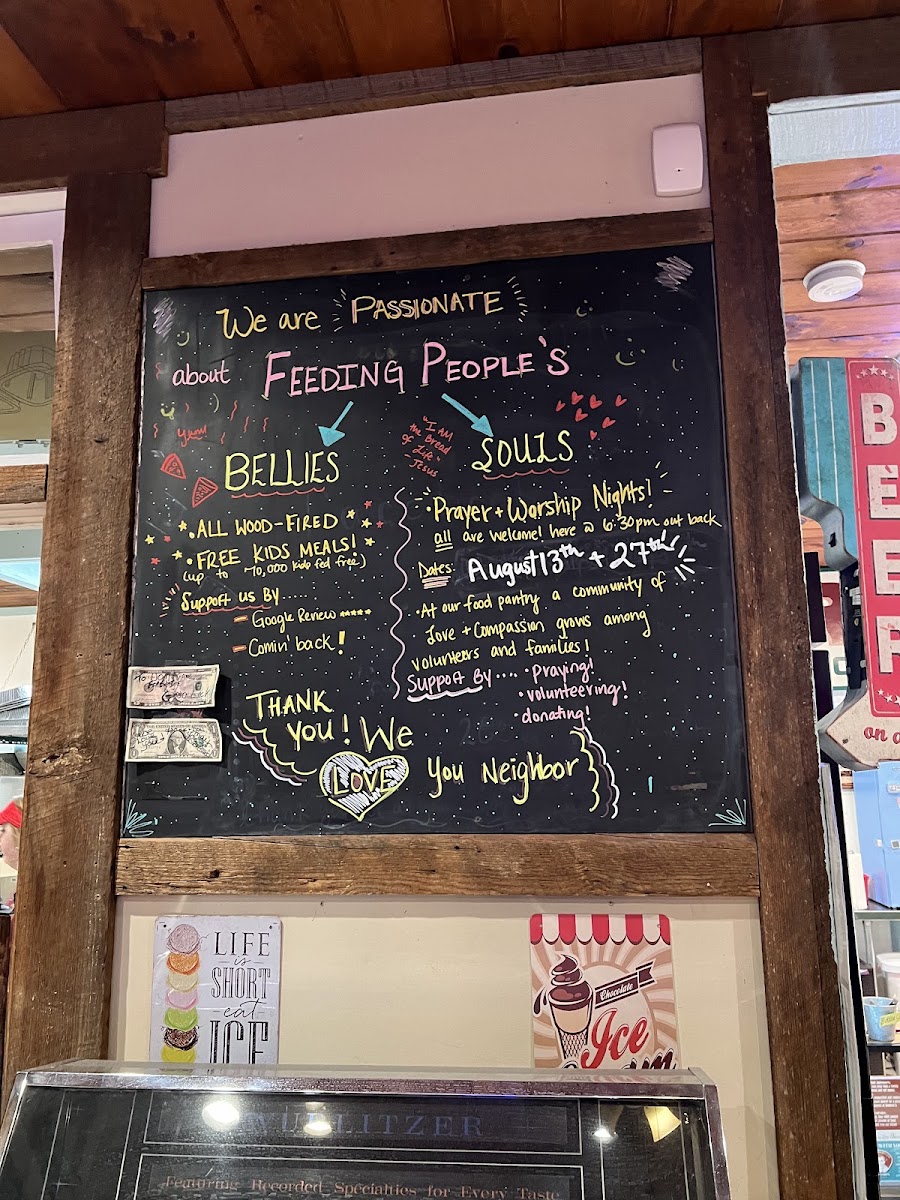 We are PASSIONATE
about FEEDING PEOPLE'S
yum!
BELLIES
• ALL WOOD-FIRED
• FREE KIDS MEALS!
(up to ~10,000 kids fed free)
Support us By.....
- Google Review *****
- Comin' back!
"I AM
the Bread
of Life"
Jesus
SOULS
• Prayer + Worship Nights!
all are welcome! here @ 6:30pm out back
Dates: August 13th + 27th!
• At our food pantry a community of
love + compassion grows among
volunteers and families!
Support By.... • Praying!
• volunteering!
• donating!
THANK
you! We
LOVE you Neighbor
BEER
on
LIFE
is
SHORT
eat
ICE
Chocolate
Ice
WURLITZER
Featuring Recorded Specialties for Every Taste